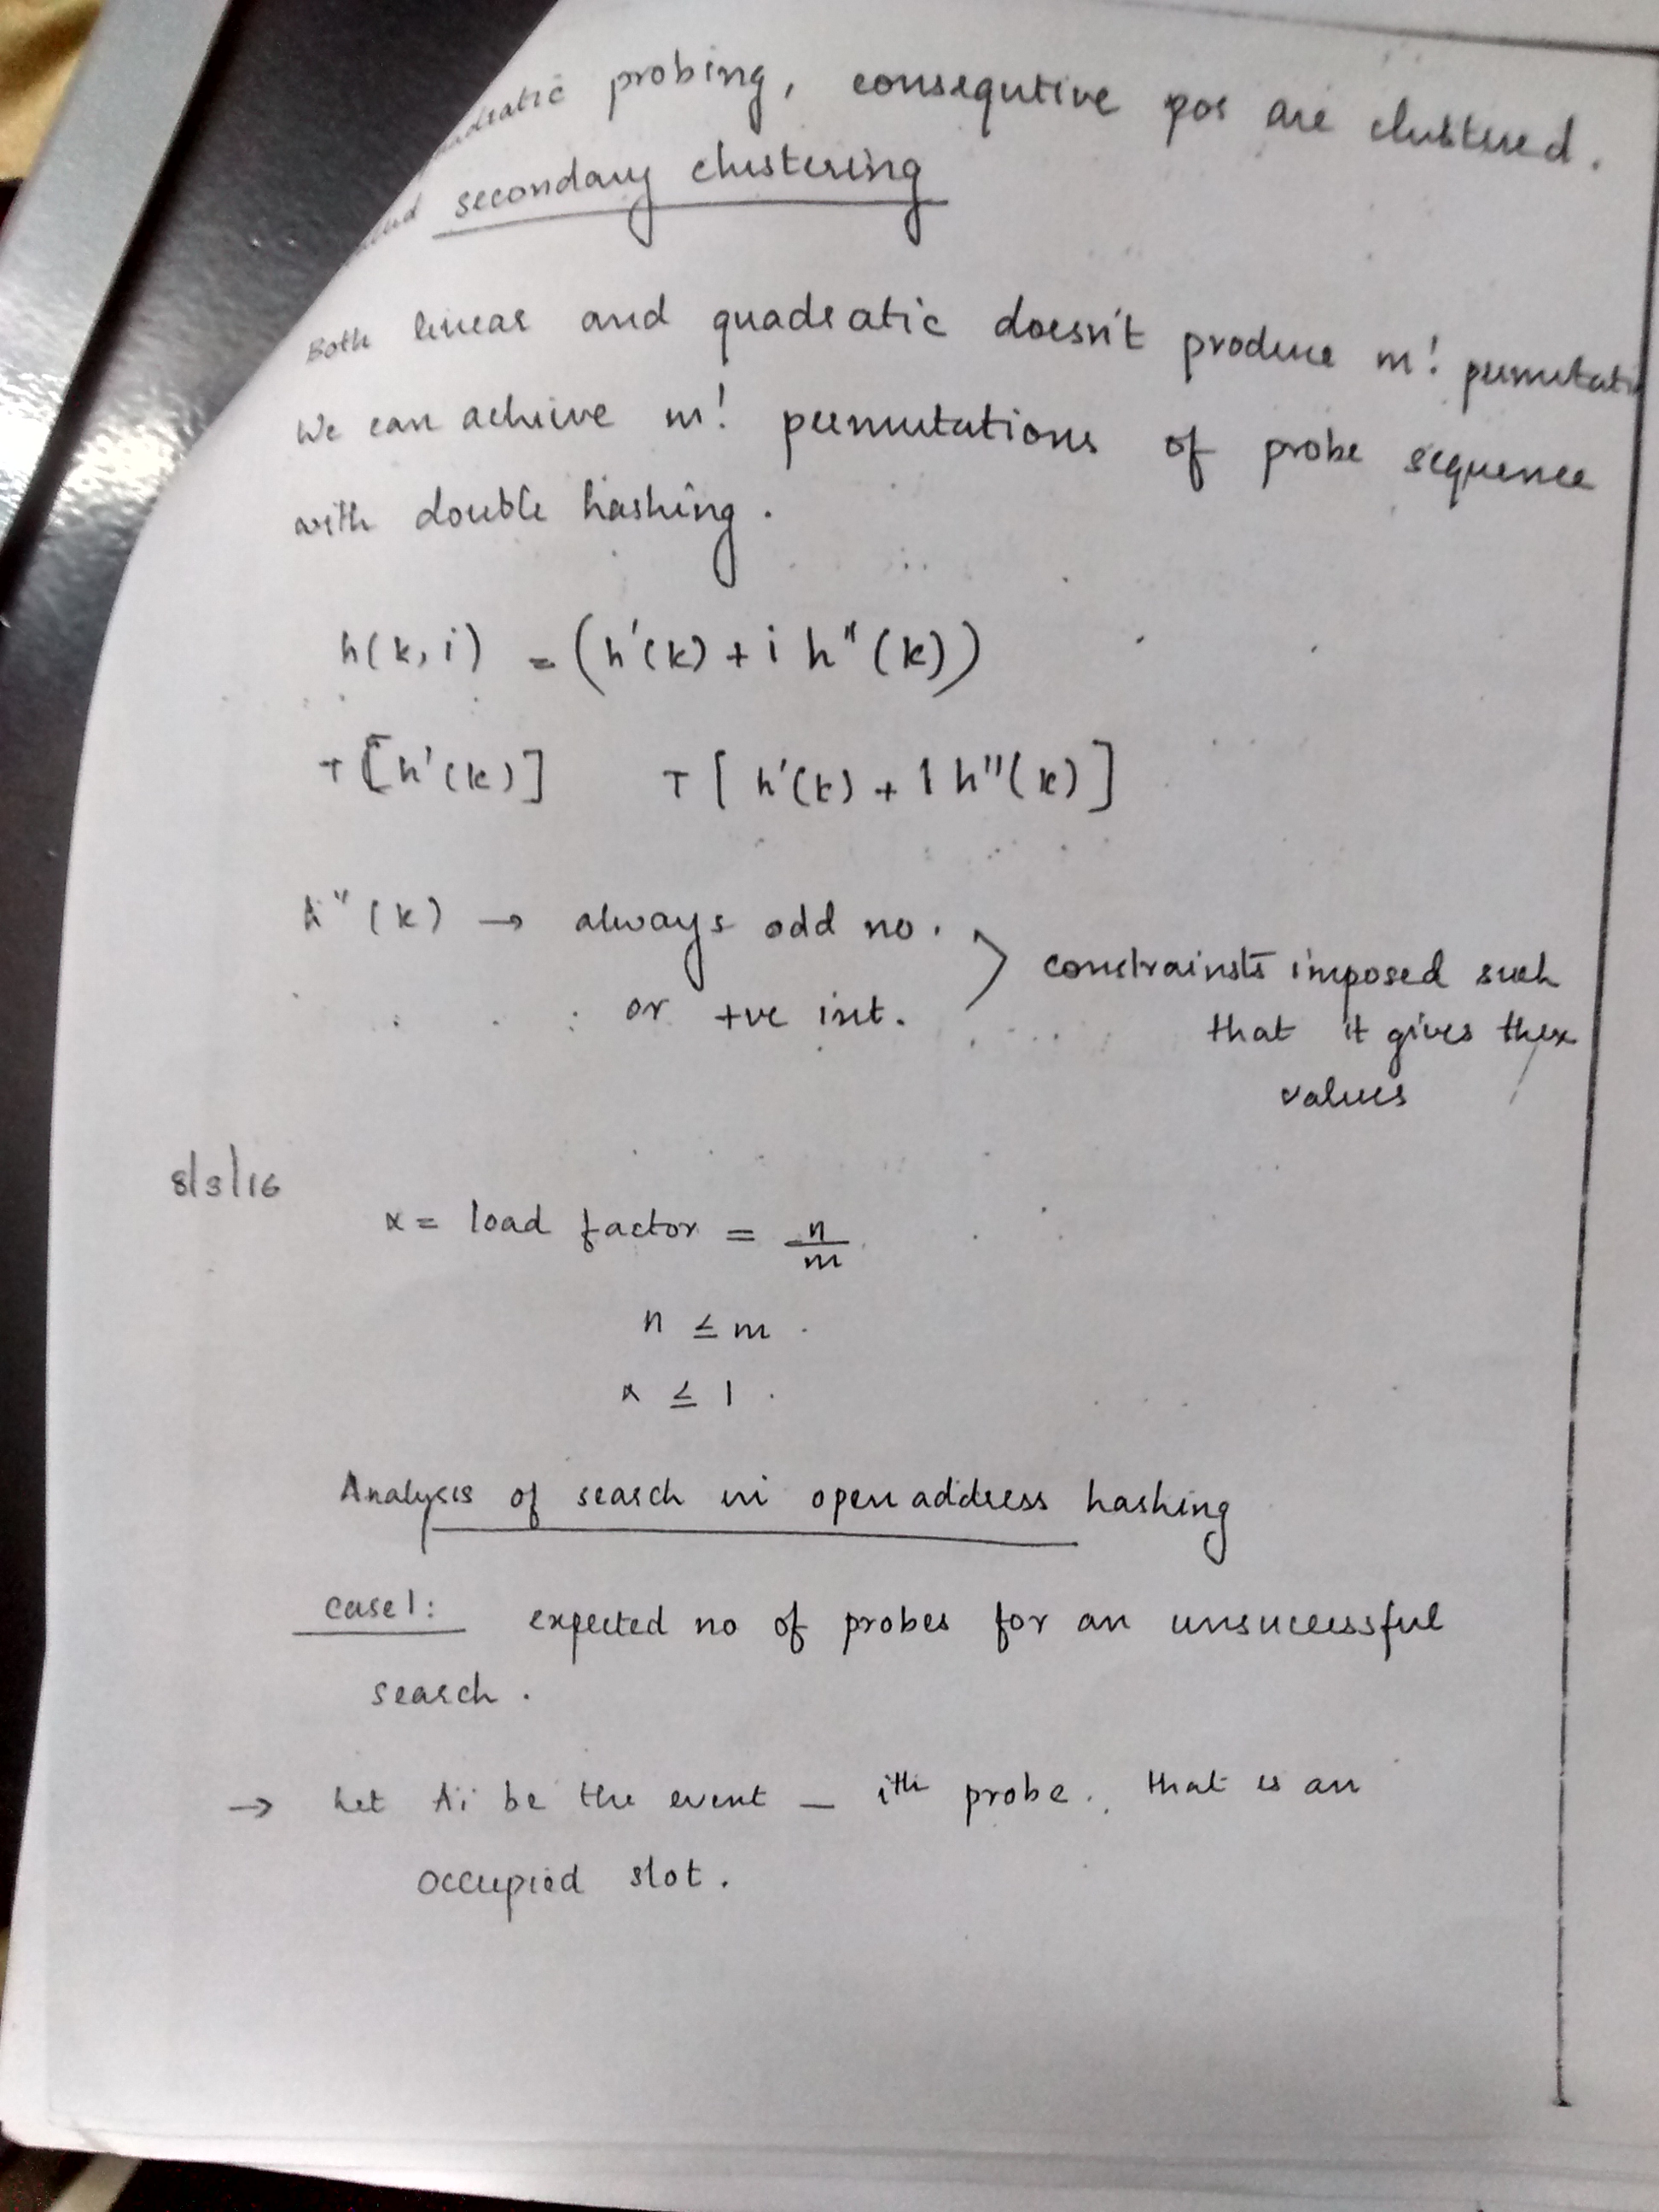 probing, consequtive pos are clustered.
secondary clustering
Both linear and quadratic doesn't produce m! permutati
We can achive m! permutations of probe sequence
with double hashing.
h(k, i) = (h'(k) + i h"(k))
T [h'(k)] T [ h'(k) + 1 h"(k) ]
h"(k) → always odd no.
or +ve int.
constrainsts imposed such
that it gives these
values
8/3/16
α = load factor = n/m
n ≤ m.
α ≤ 1.
Analysis of search in open address hashing
case 1: expected no of probes for an unsucessful
search.
→ Let Ai be the event – ith probe. that is an
occupied slot.